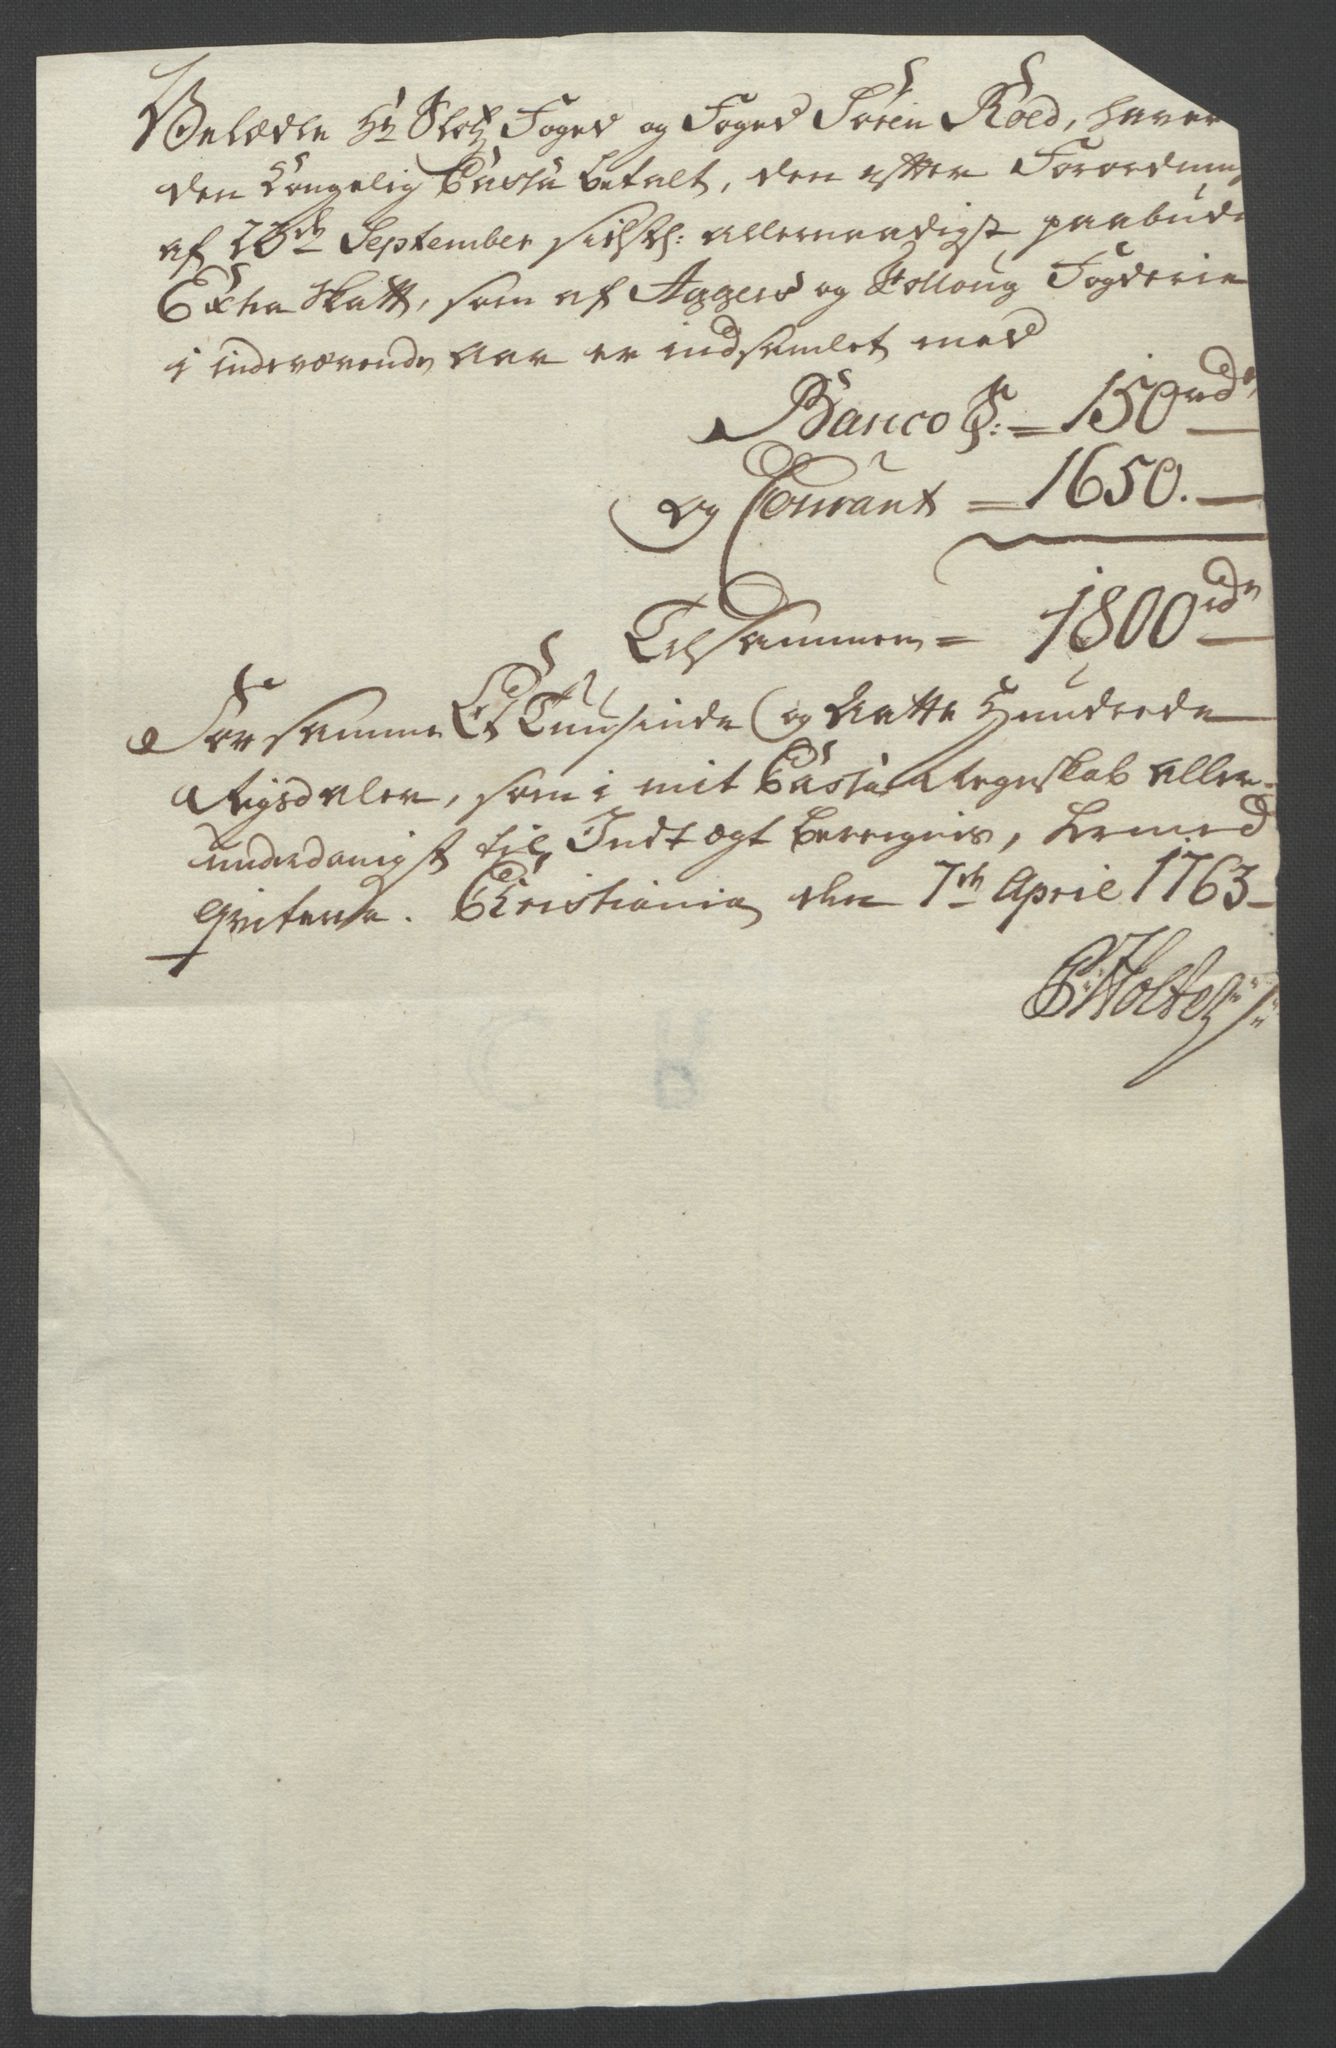 Velædle Hr Slotz Foged og Foged Søren Röed, haver
den Kongelig Cassa betalt, den efter Forordning
af 23de September sidstl: allernaadigst paabudne
Extra Skatt, som af Aggers og Folloug Fogderie
i indeværende Aar er indsamlet med
Banco S: = 150 rdr
og Courant = 1650. —
Tilsammen = 1800 rdr
For samme Et Tusinde og Aatte Hundrede
Rigsdaler, som i mit Cassa Regnskab aller-
underdanigst til Indtægt beregnis, hermed
qviteres. Christiania den 7de April 1763
P: Holter